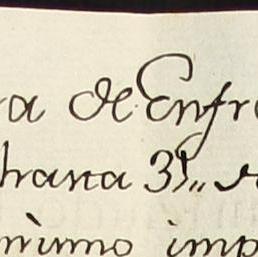 ra de Enfre
trana 31,, de
nimo imp